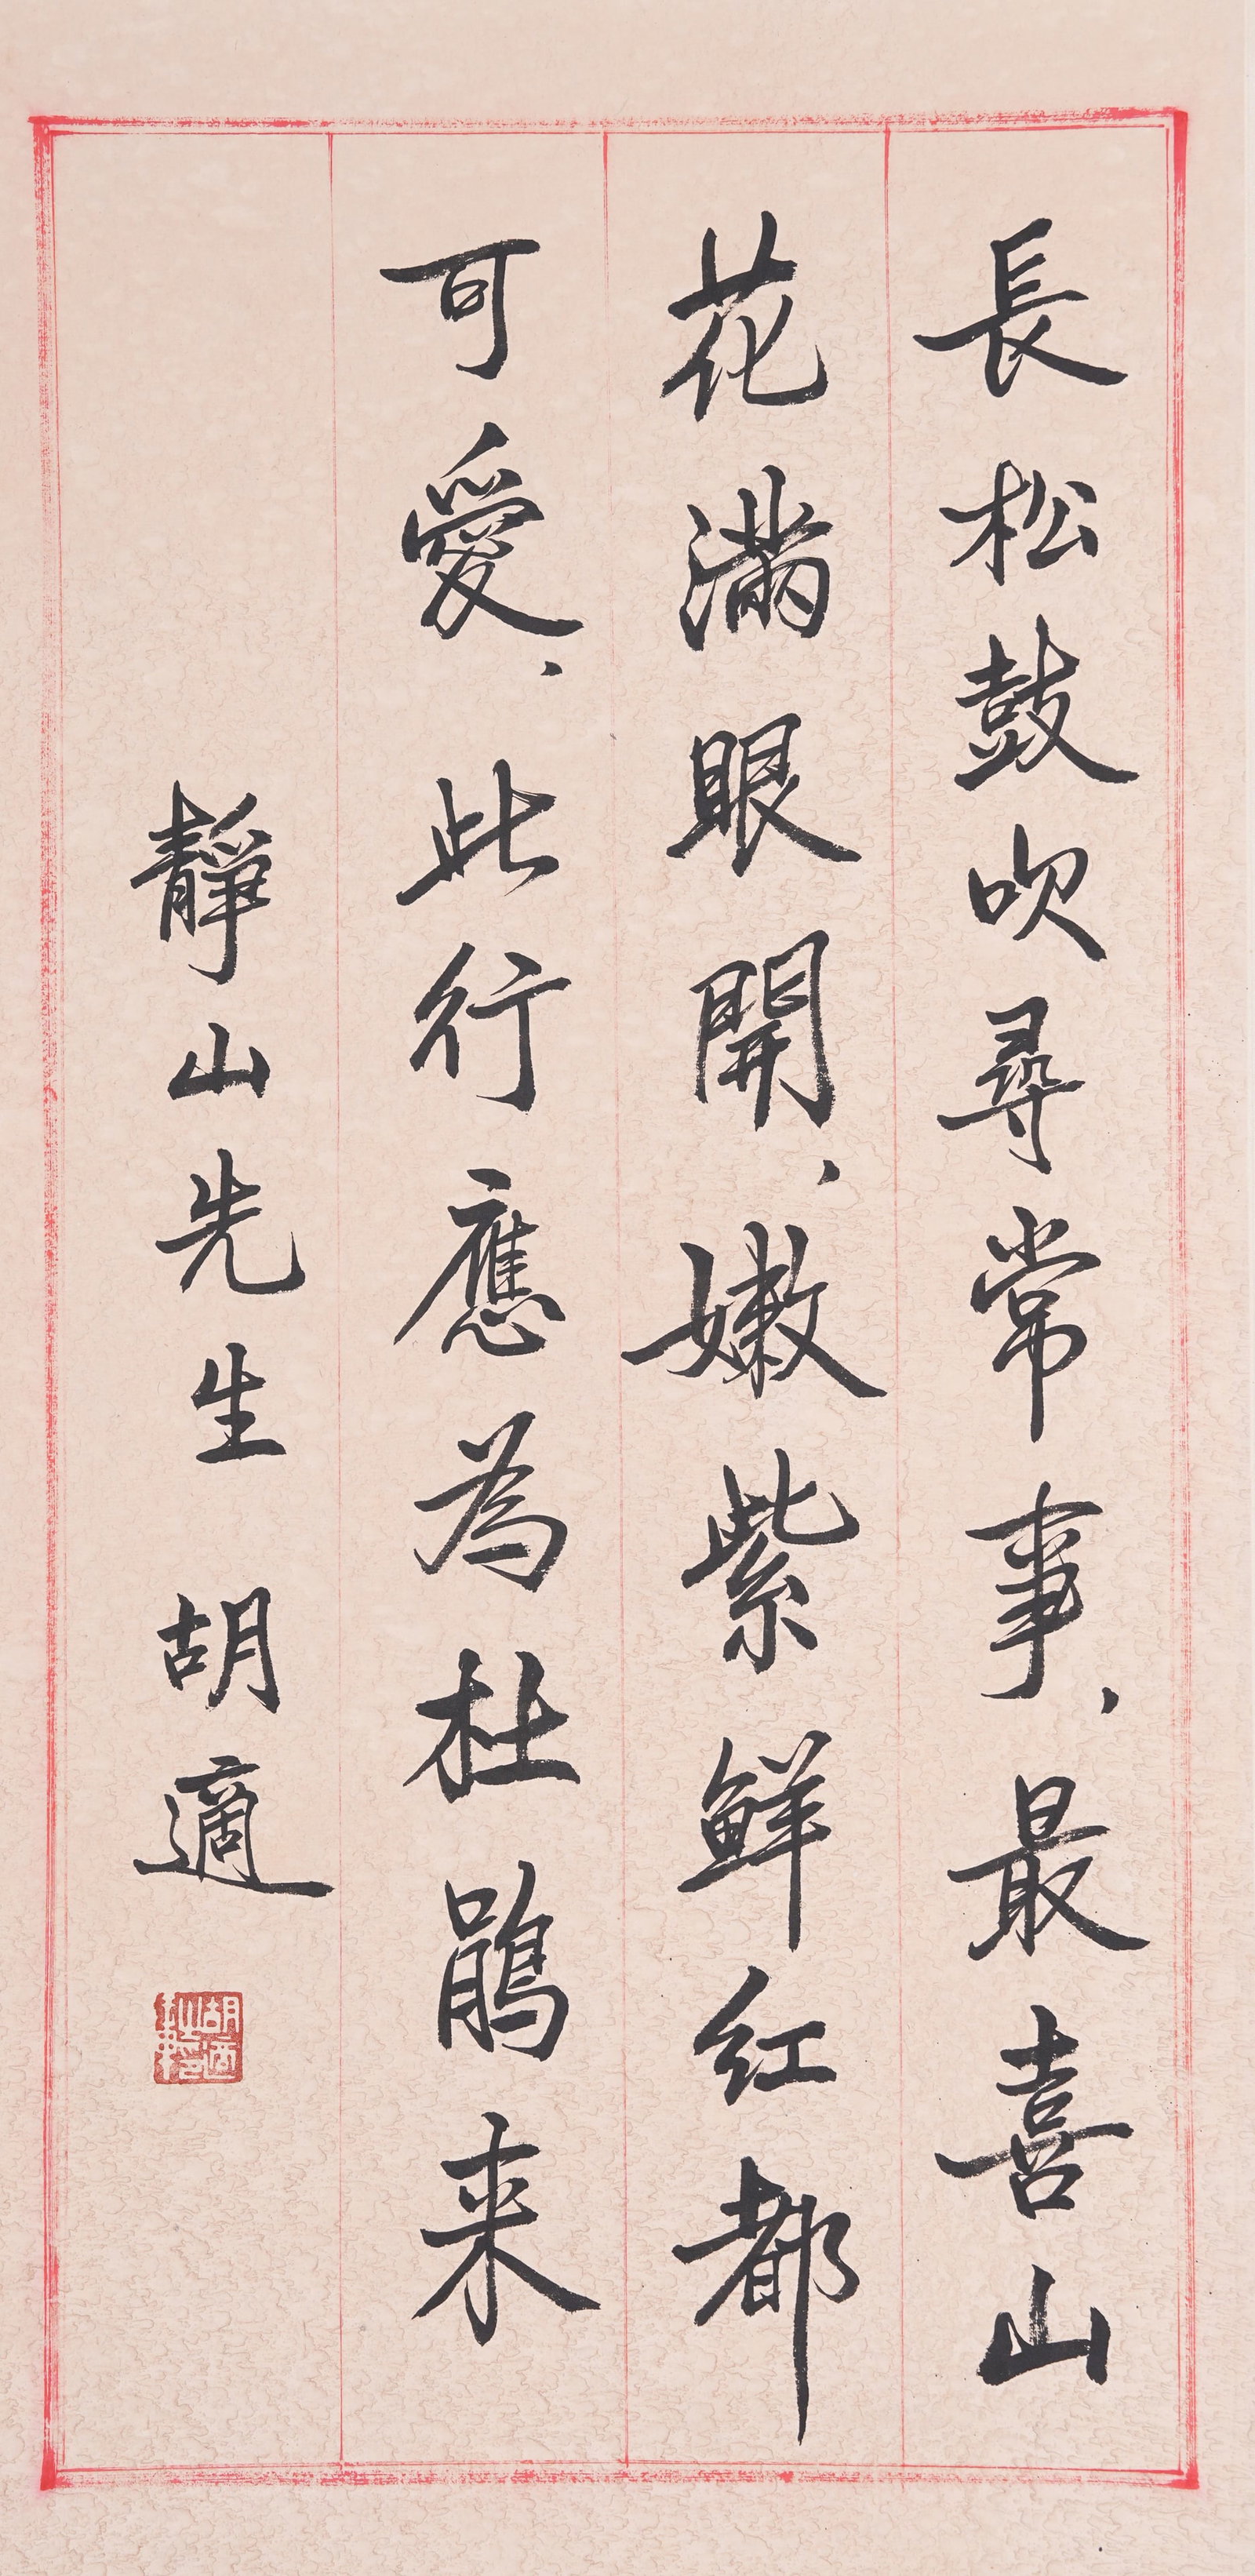 長松鼓吹尋常事，最喜山
花滿眼開，嫩紫鮮红都
可愛，此行應為杜鵑来
靜山先生 胡適